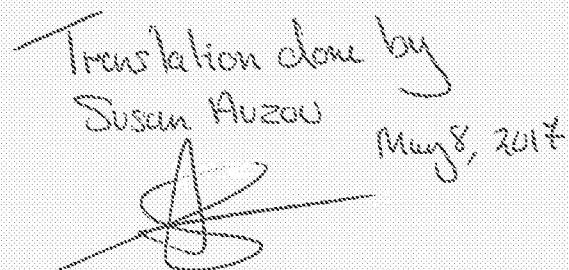 Translation done by
Susan Auzou
May 8, 2017